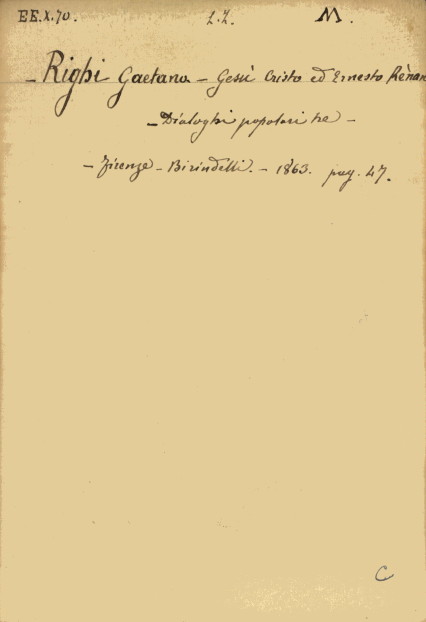 EE.X.70. L.Z. M.
- Righi Gaetano - Gesù Cristo ed Ernesto Rènan
- Dialoghi popolari tre -
- Firenze - Birindelli. - 1863. pag. 47.
C